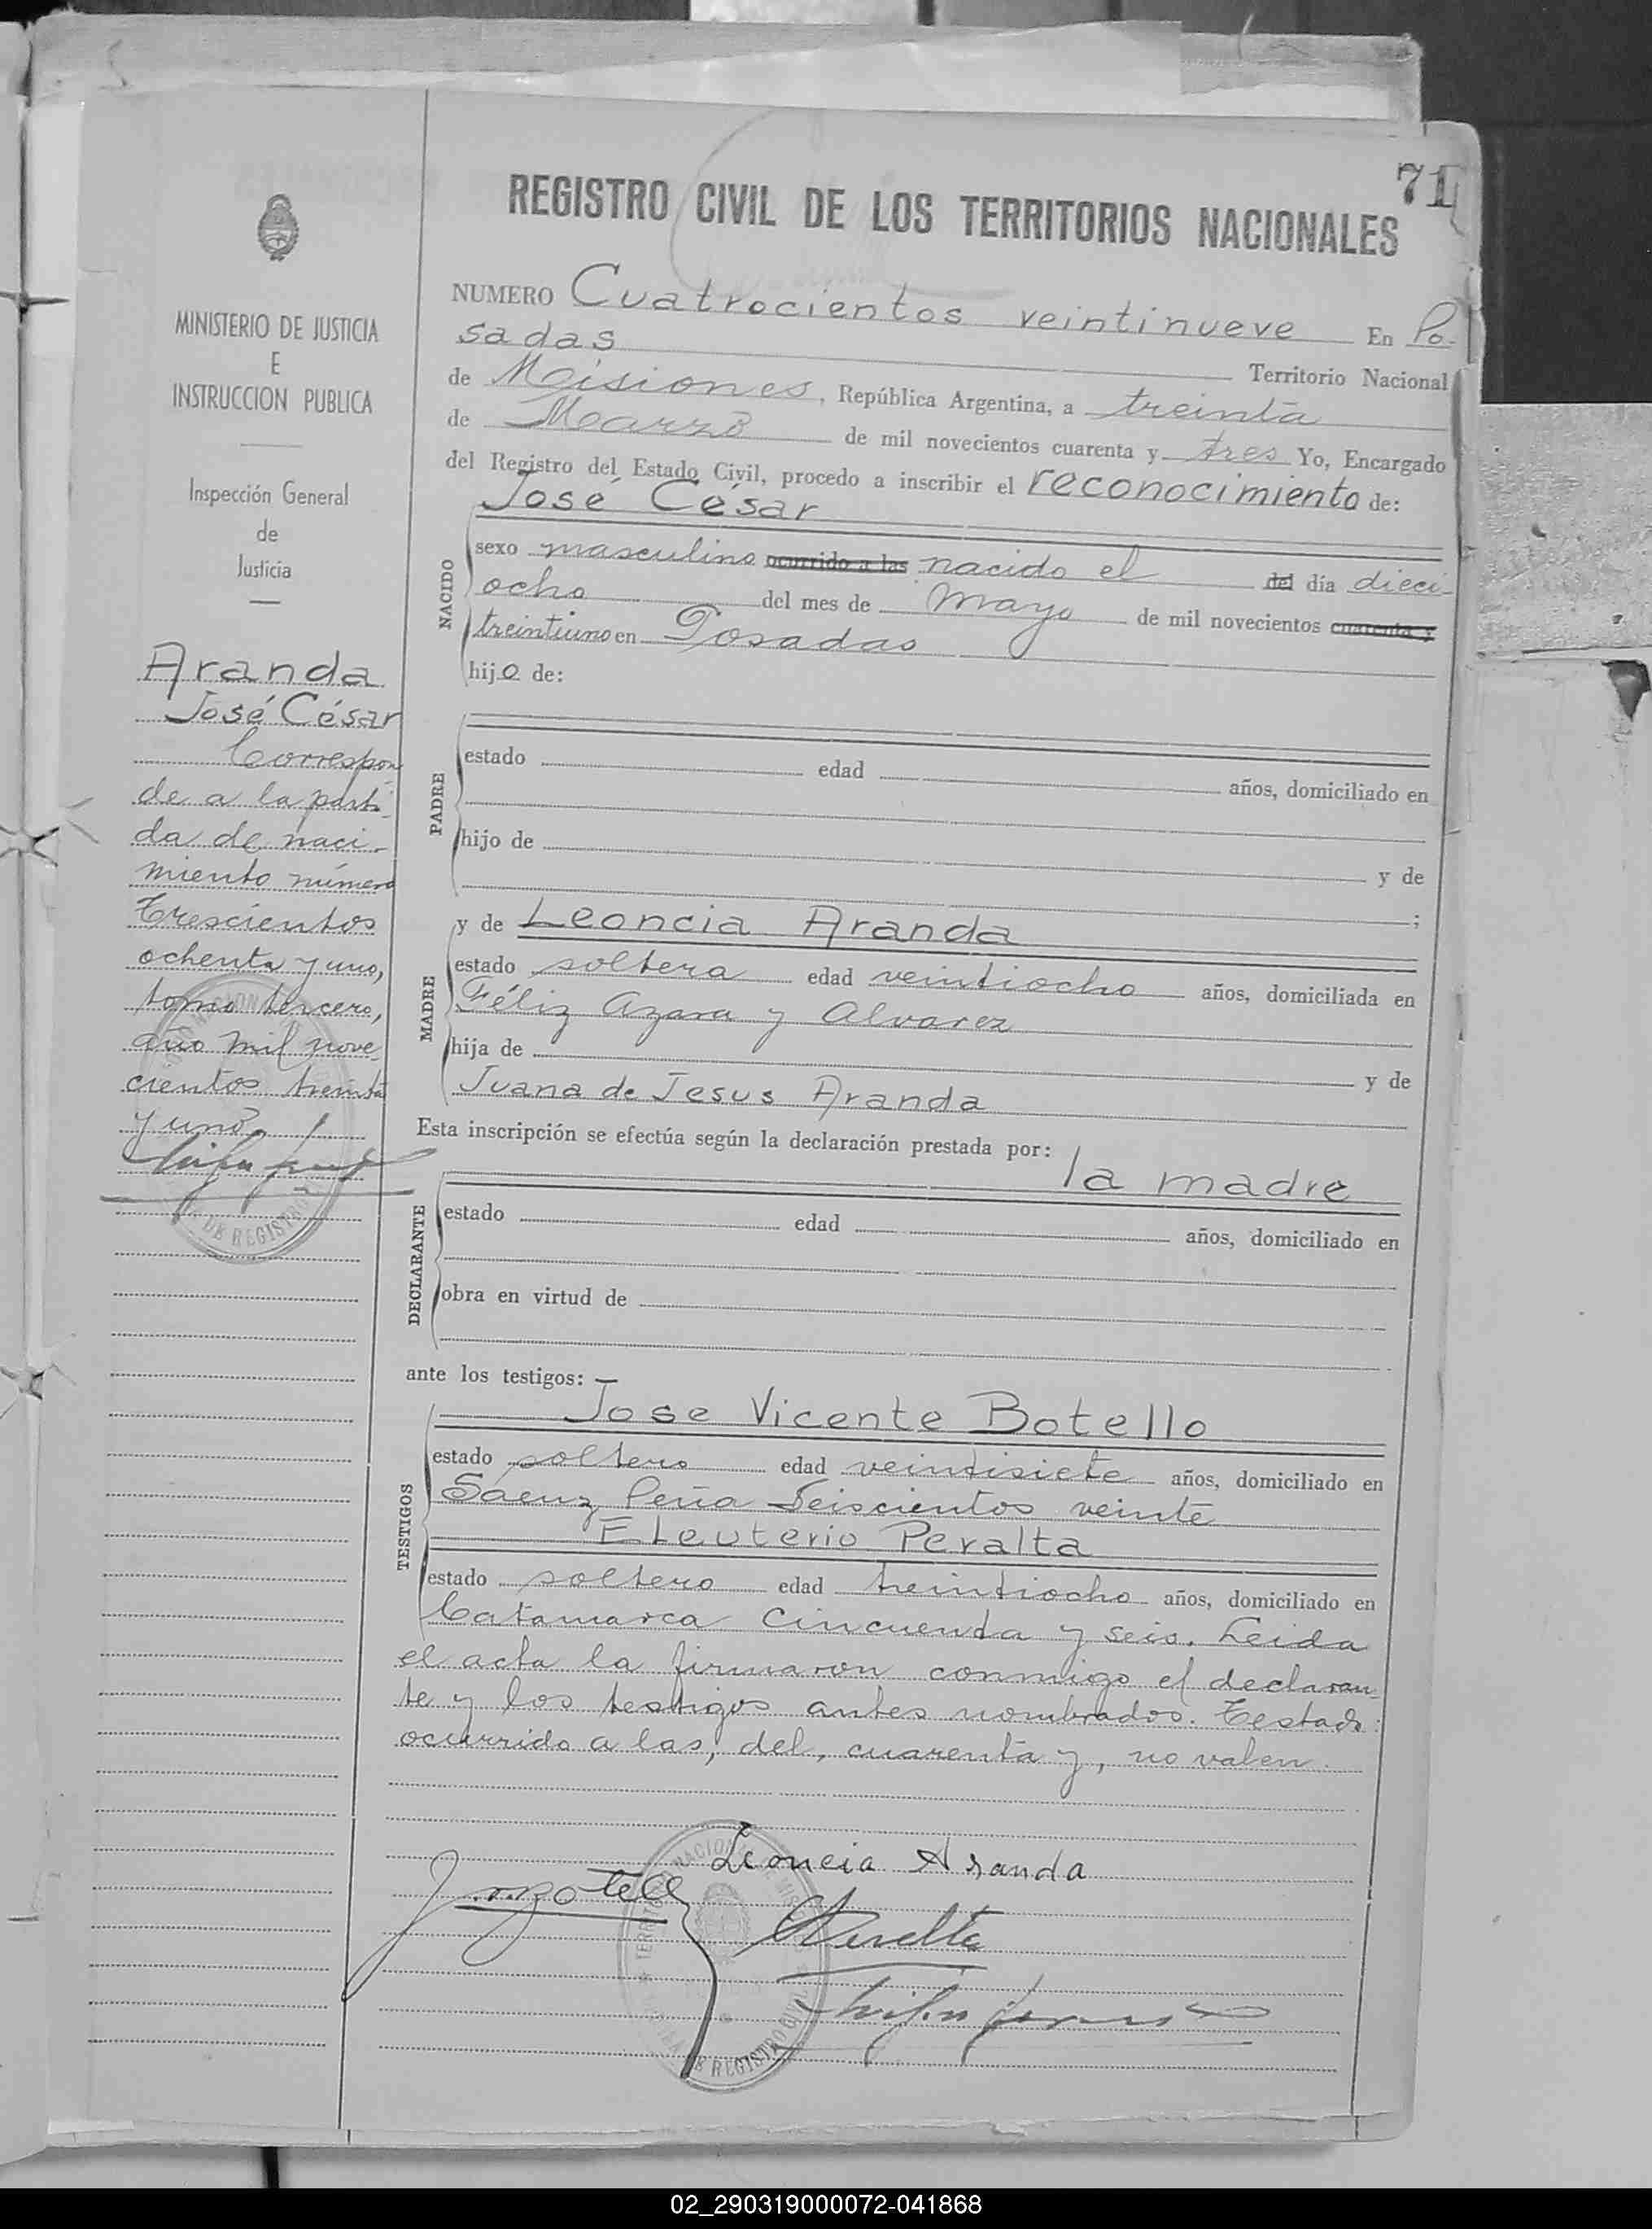 71
REGISTRO CIVIL DE LOS TERRITORIOS NACIONALES
MINISTERIO DE JUSTICIA
E
INSTRUCCION PUBLICA
Inspección General
de
Justicia
Aranda
José César
Correspon
de a la parti-
da de naci-
miento número
Trescientos
ochenta y uno,
tomo tercero,
año mil nove-
cientos treinta
y uno.
DE REGISTRO
NUMERO Cuatrocientos veintinueve En Po-
sadas Territorio Nacional
de Misiones, República Argentina, a treinta
de Marzo de mil novecientos cuarenta y tres Yo, Encargado
del Registro del Estado Civil, procedo a inscribir el reconocimiento de:
José César
NACIDO
sexo masculino ocurrido a las nacido el del día dieci-
ocho del mes de Mayo de mil novecientos cuarenta y
treintiuno en Posadas
hijo de:
PADRE
estado edad años, domiciliado en
hijo de y de
;
MADRE
y de Leoncia Aranda
estado soltera edad veintiocho años, domiciliada en
Féliz Azara y Alvarez
hija de y de
Juana de Jesus Aranda
Esta inscripción se efectúa según la declaración prestada por:
la madre
DECLARANTE
estado edad años, domiciliado en
obra en virtud de
ante los testigos:
TESTIGOS
Jose Vicente Botello
estado soltero edad veintisiete años, domiciliado en
Sáenz Peña Seiscientos veinte
Eleuterio Peralta
estado soltero edad treintiocho años, domiciliado en
Catamarca Cincuenta y seis. Leida
el acta la firmaron conmigo el declaran-
te y los testigos antes nombrados. Testado:
ocurrido a las, del, cuarenta y, no valen.
Leoncia Aranda
Peralta
REGISTRO CIVIL
02_290319000072-041868